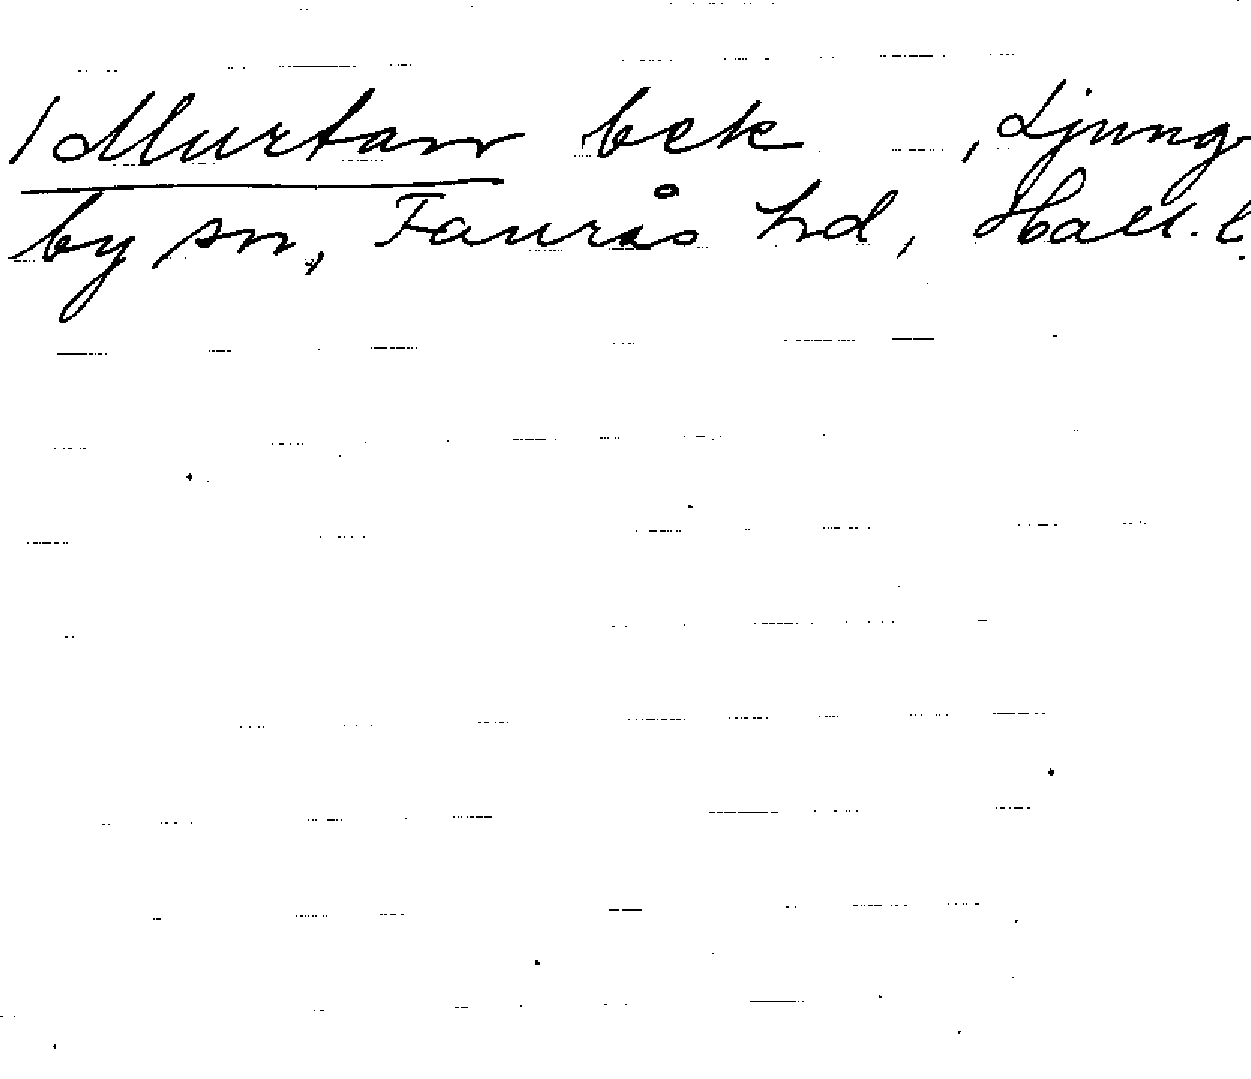 /Murtan bek , Ljung
by sn, Faurås hd, Hall. l.